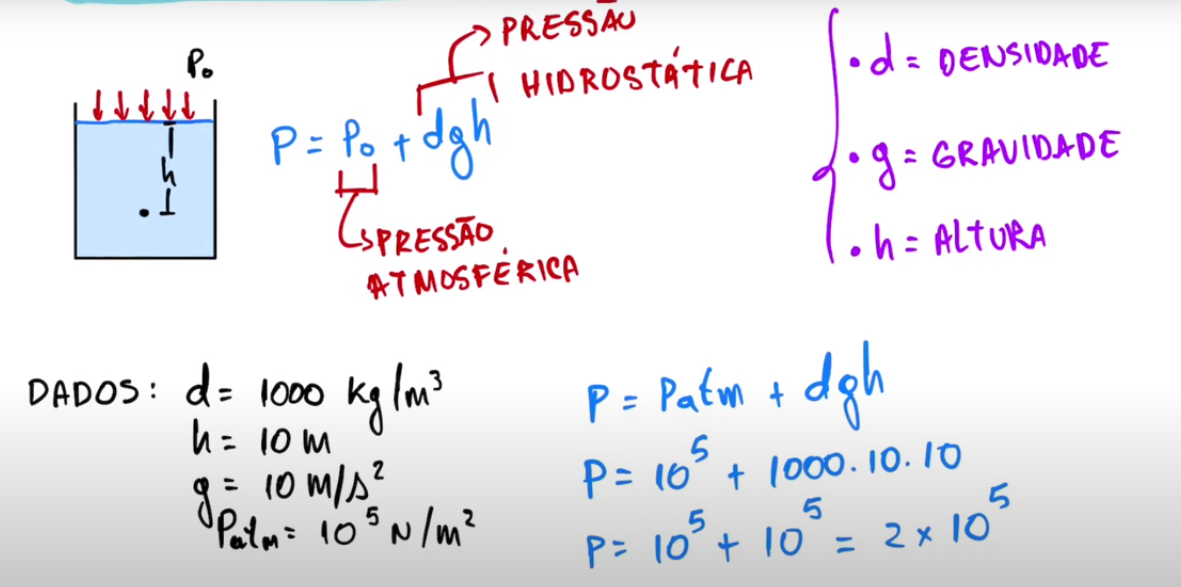 P₀
h
P = P₀ + dgh
PRESSÃO
HIDROSTÁTICA
PRESSÃO
ATMOSFÉRICA
• d = DENSIDADE
• g = GRAVIDADE
• h = ALTURA
DADOS: d = 1000 kg/m³
h = 10 m
g = 10 m/s²
Patm = 10⁵ N/m²
P = Patm + dgh
P = 10⁵ + 1000.10.10
P = 10⁵ + 10⁵ = 2 x 10⁵